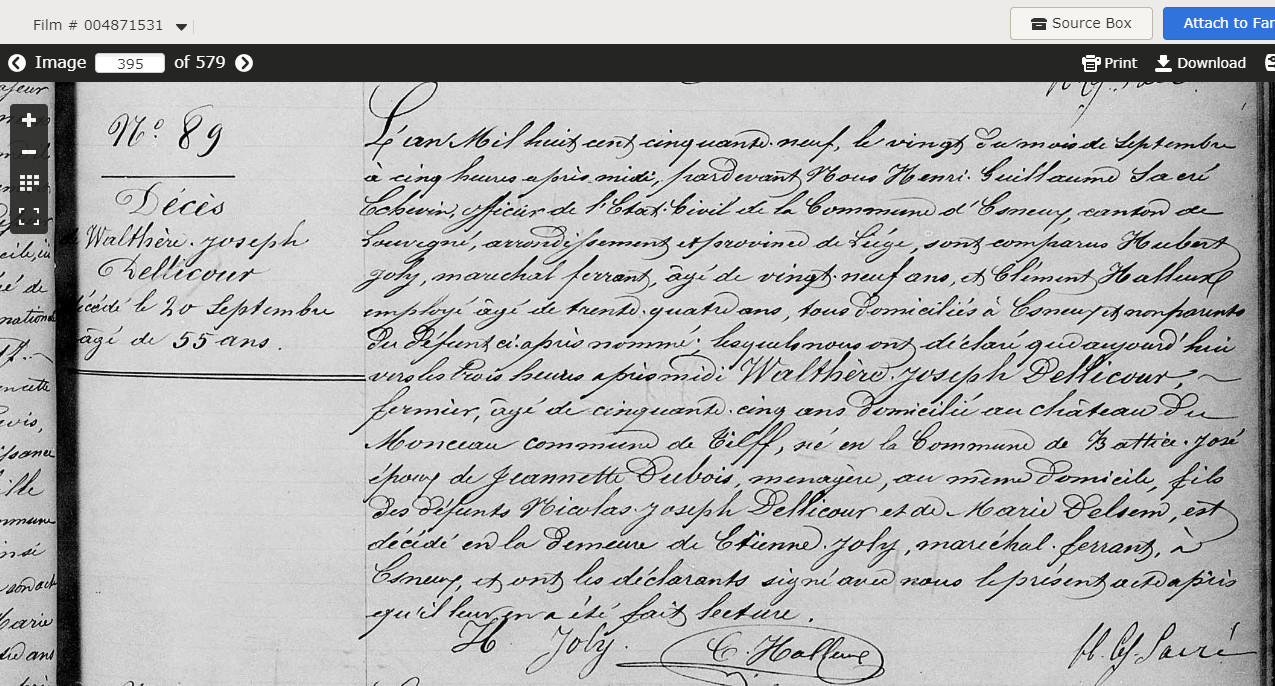 Film # 004871531
Source Box
Attach to Fam
Image 395 of 579
Print
Download
N.º 89
Décès
de Walthère. Joseph
Dellicour
décédé le 20 Septembre
âgé de 55 ans.
L'an Mil huit cent cinquante. neuf, le vingt du mois de Septembre
à cinq heures après. midi, pardevant Nous Henri. Guillaume Sacré
Echevin, officier de l'Etat. Civil de la Commune d'Esneux, canton de
Louvegné, arrondissement et province de Liége, sont comparus Hubert
Joly, marechal ferrant, âgé de vingt. neuf ans, et Clément Halleux
employé âgé de trente. quatre ans, tous domiciliés à Esneux et non parents
du défunt ci. après nommé; lesquels nous ont déclaré que aujourd'hui
vers les trois heures après midi Walthère. Joseph Dellicour,
fermier, âgé de cinquante. cinq ans domicilié au château du
Monceau commune de Tilff, né en la Commune de Battice.
époux de Jeannette Dubois, menagère, au même domicile, fils
des défunts Nicolas. Joseph Dellicour et de Marie Delsem, est
décédé en la demeure de Etienne. Joly, maréchal. ferrant, à
Esneux, et ont les déclarants signé avec nous le présent acte après
qu'il leur en a été fait lecture.
H. Joly.
C. Halleux
H. G. Sacré